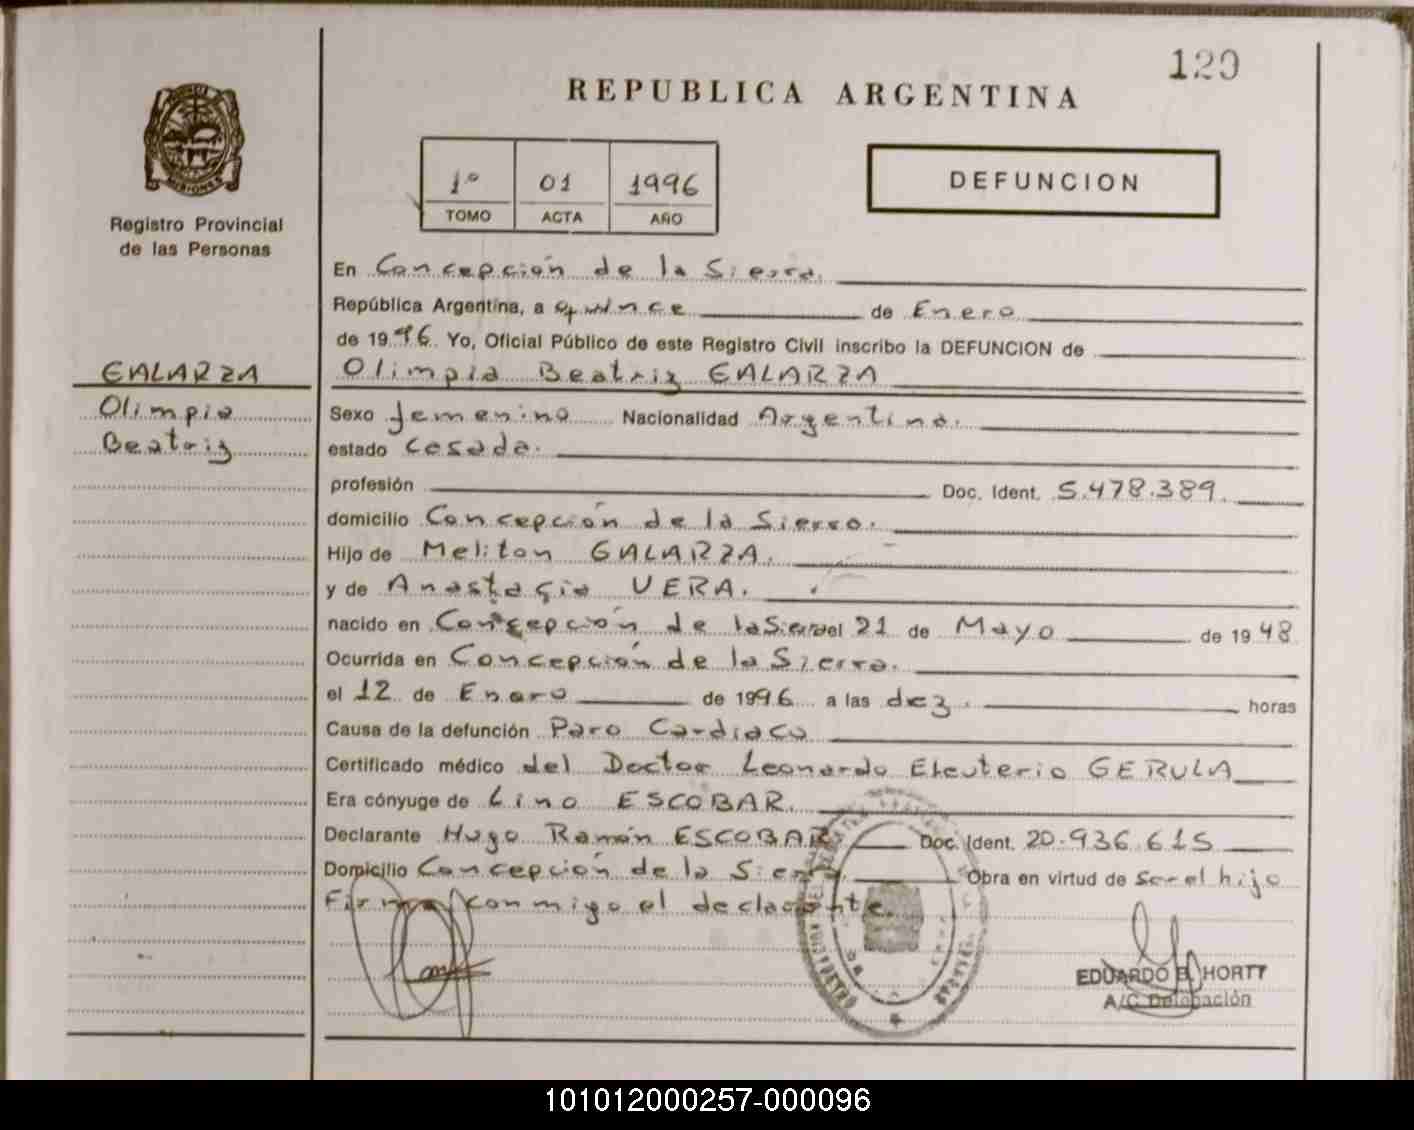 120
REPUBLICA ARGENTINA
MISIONES
Registro Provincial
de las Personas
1º 01 1996
TOMO ACTA AÑO
DEFUNCION
En Concepción de la Sierra.
República Argentina, a quince de Enero
de 1996. Yo, Oficial Público de este Registro Civil inscribo la DEFUNCION de
GALARZA
Olimpia Beatriz GALARZA
Olimpia
Beatriz
Sexo femenino Nacionalidad Argentina.
estado casada.
profesión Doc. Ident. 5.478.389.
domicilio Concepción de la Sierra.
Hijo de Meliton GALARZA.
y de Anastacia VERA.
nacido en Concepción de la Sierra el 21 de Mayo de 1948
Ocurrida en Concepción de la Sierra.
el 12 de Enero de 1996 a las diez. horas
Causa de la defunción Paro Cardiaco
Certificado médico del Doctor Leonardo Eleuterio GERULA
Era cónyuge de Lino ESCOBAR.
Declarante Hugo Ramón ESCOBAR Doc. Ident. 20.936.615
Domicilio Concepción de la Sierra. Obra en virtud de ser el hijo
Firma conmigo el declarante.
EDUARDO B. HORTT
A/C Delegación
101012000257-000096